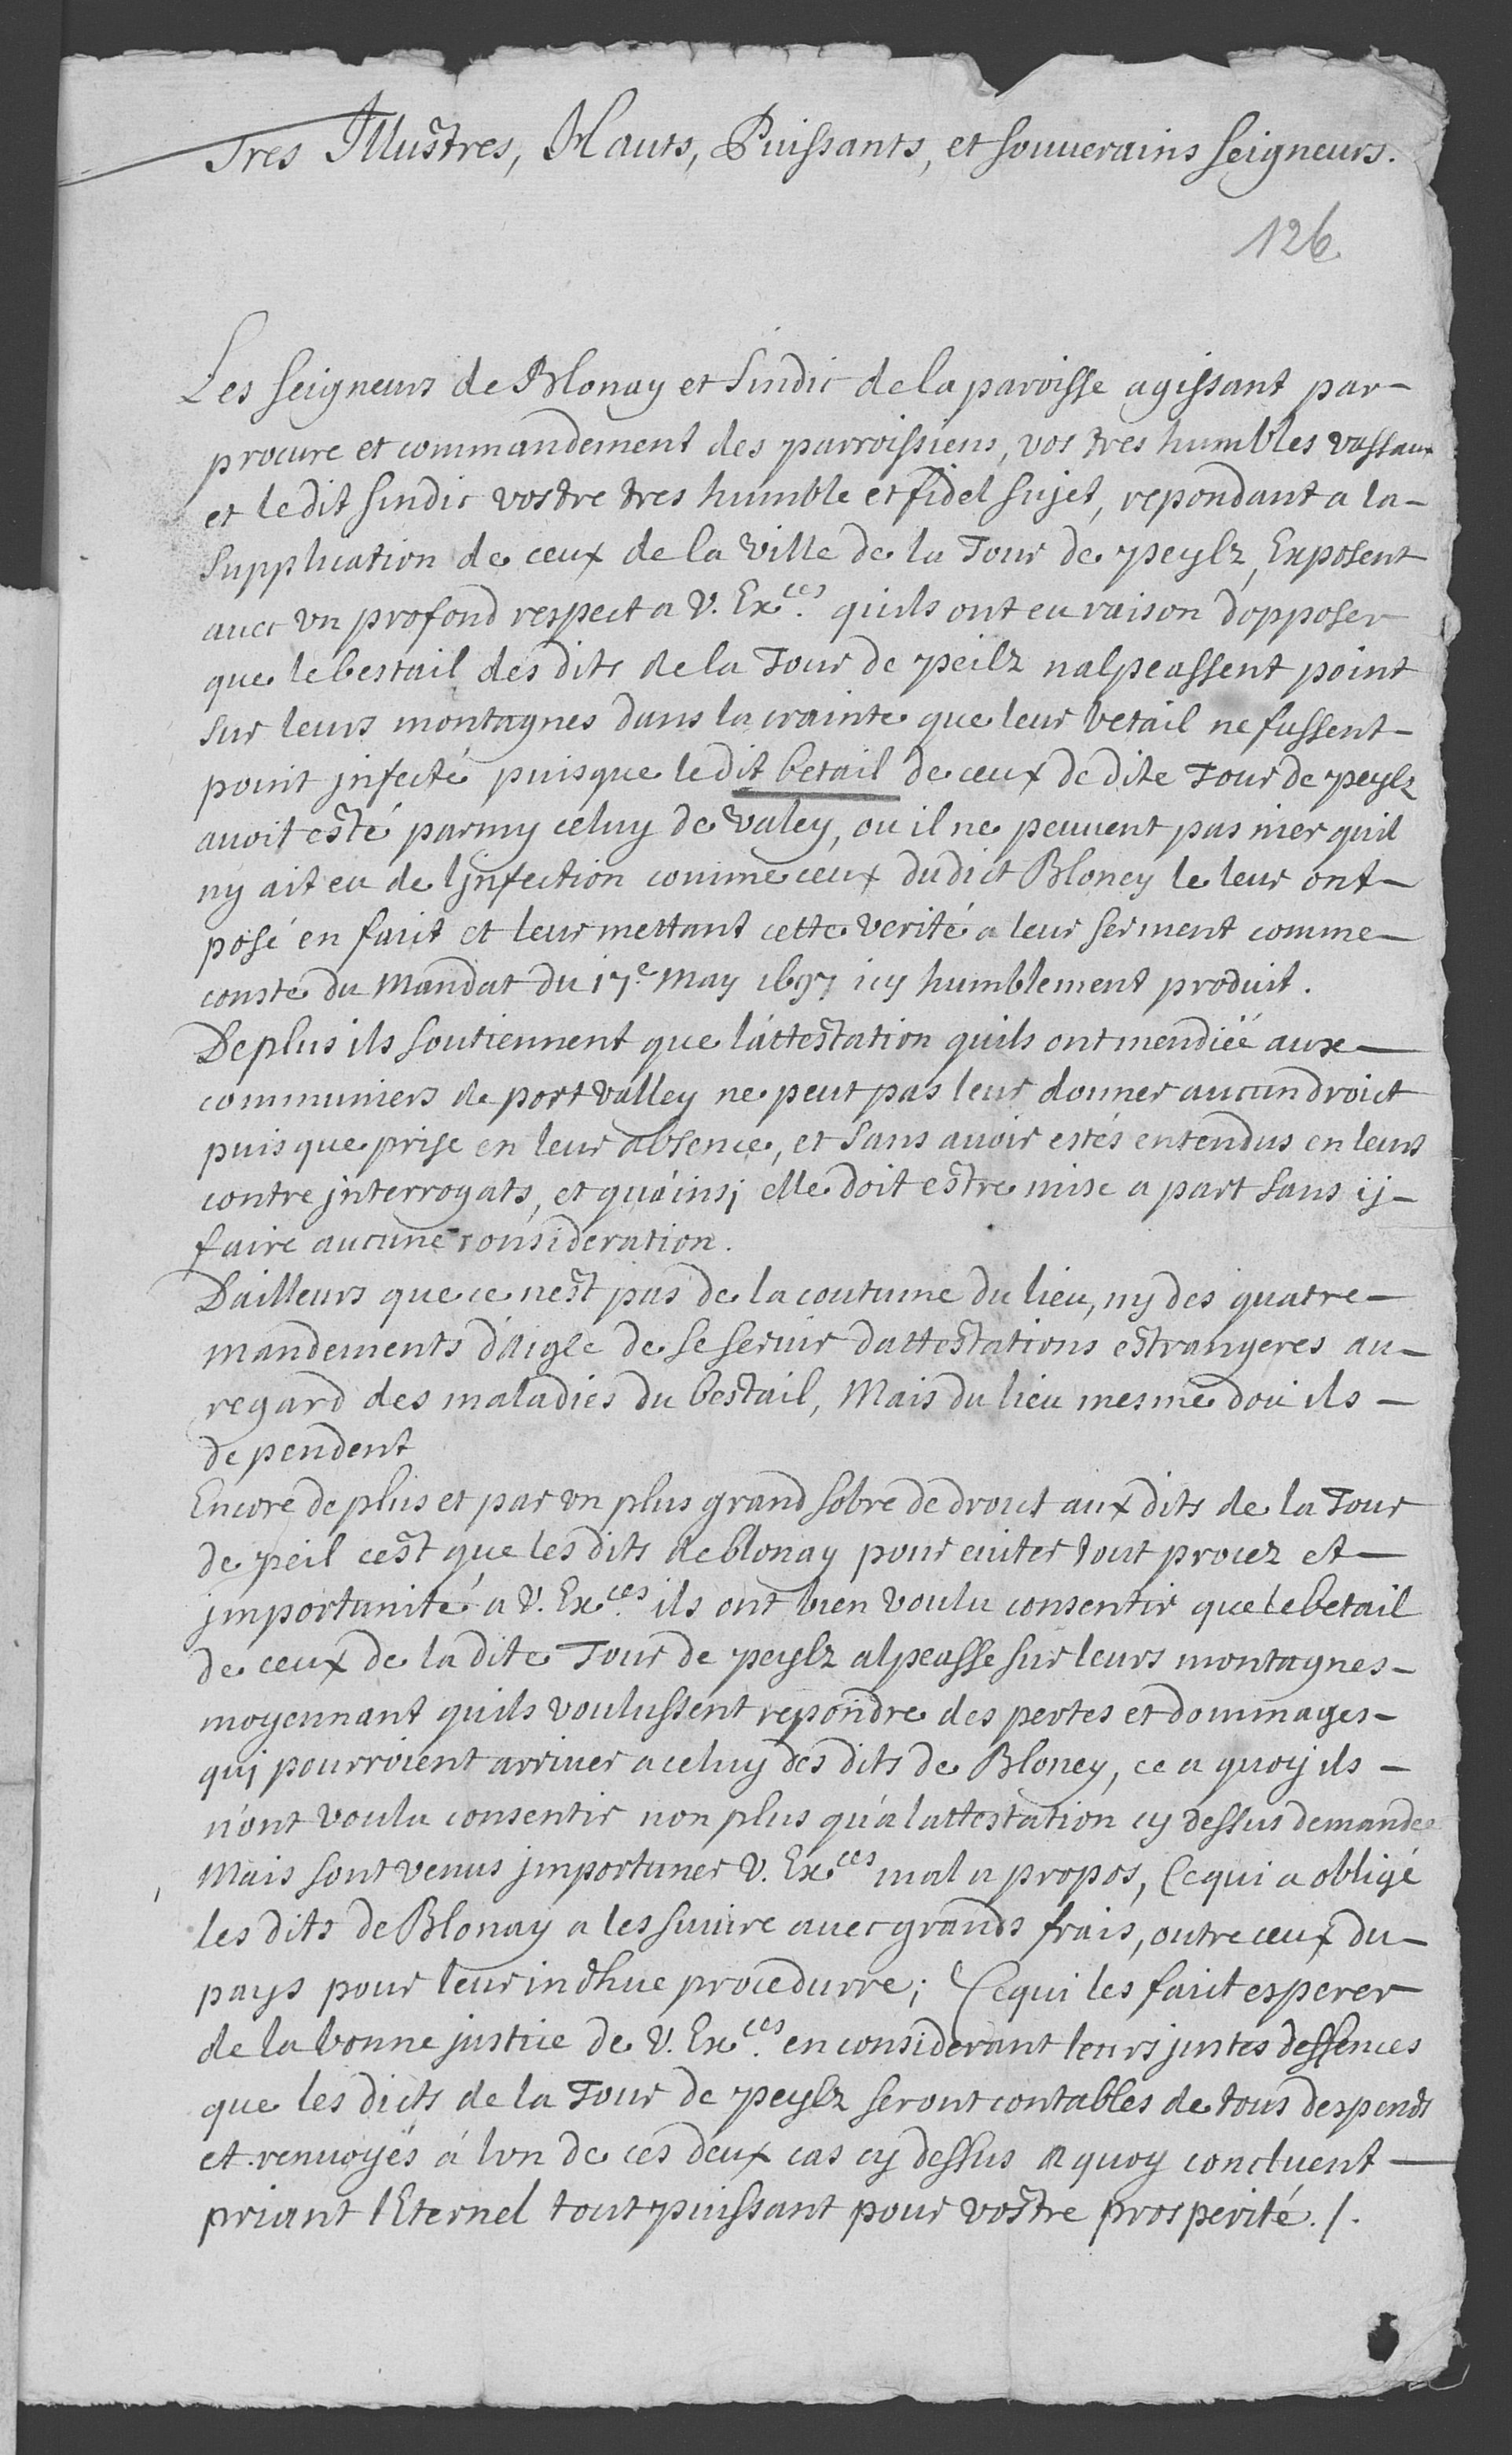 Tres Illustres, Hauts, Puissants, et souuerains seigneurs.
126
Les seigneurs de Blonay et sindic de la paroisse agissant par-
procure et commandement des parroissiens, vos tres humbles vassaux
et le dit sindic vostre tres humble et fidel sujet, repondant a la-
supplication de ceux de la ville de la Tour de peylz, Exposent
auec vn profond respect a V. Ex.ces quils ont eu raison dopposer
que le bestail des dits de la Tour de peilz nalpeassent point
sur leurs montagnes dans la crainte que leur betail ne fussent-
point jnfecté puisque le dit betail de ceux de dite Tour de peylz
auoit esté parmy celuy de valey, ou il ne peuuent pas nier quil
ny ait eu de ljnfection comme ceux dudict Bloney le leur ont-
posé en fait et leur mettant cette verité a leur serment comme-
conste du Mandat du 17.e May 1697 icy humblement produit.
De plus ils soutiennent que lattestation quils ont mendiée aux-
communiers de port valley ne peut pas leur donner aucun droict
puis que prise en leur absence, et sans auoir estés entendus en leurs
contre jnterrogats, et quáinsj elle doit estre mise a part sans ij-
faire aucune consideration.
Dailleurs que ce nest pas de la coutume du lieu, ny des quatre-
mandements dáigle de se seruir dattestations estrangeres au-
regard des maladies du bestail, Mais du lieu mesme dou ils-
dependent
Encore de plus et par vn plus grand sobre de droict aux dits de la Tour
de peil cest que les dits de blonay pour euiter tout procez et-
jmportunité a V. Ex.ces ils ont bien voulu consentir que le betail
de ceux de la dite Tour de peylz alpeasse sur leurs montagnes-
moyennant quils voulussent repondre des pertes et dommages-
quj pourroient arriuer a celuy des dits de Bloney, ce a quoy ils-
n'ont voulu consentir non plus qu'a lattestation cy dessus demandée
Mais sont venus jmportuner V. Ex.ces mal a propos, Ce qui a obligé
les dits de Blonay a les suiure auec grands frais, outre ceux du-
pays pour leur indhue procedurre; Ce qui les fait esperer
de la bonne justice de V. Ex.ces en considerant leurs justes deffences
que les dicts de la Tour de peylz seront contables de tous despends
et renuoyés á lvn de ces deux cas cy dessus a quoy concluent-
priant lEternel tout puissant pour vostre prosperité./.